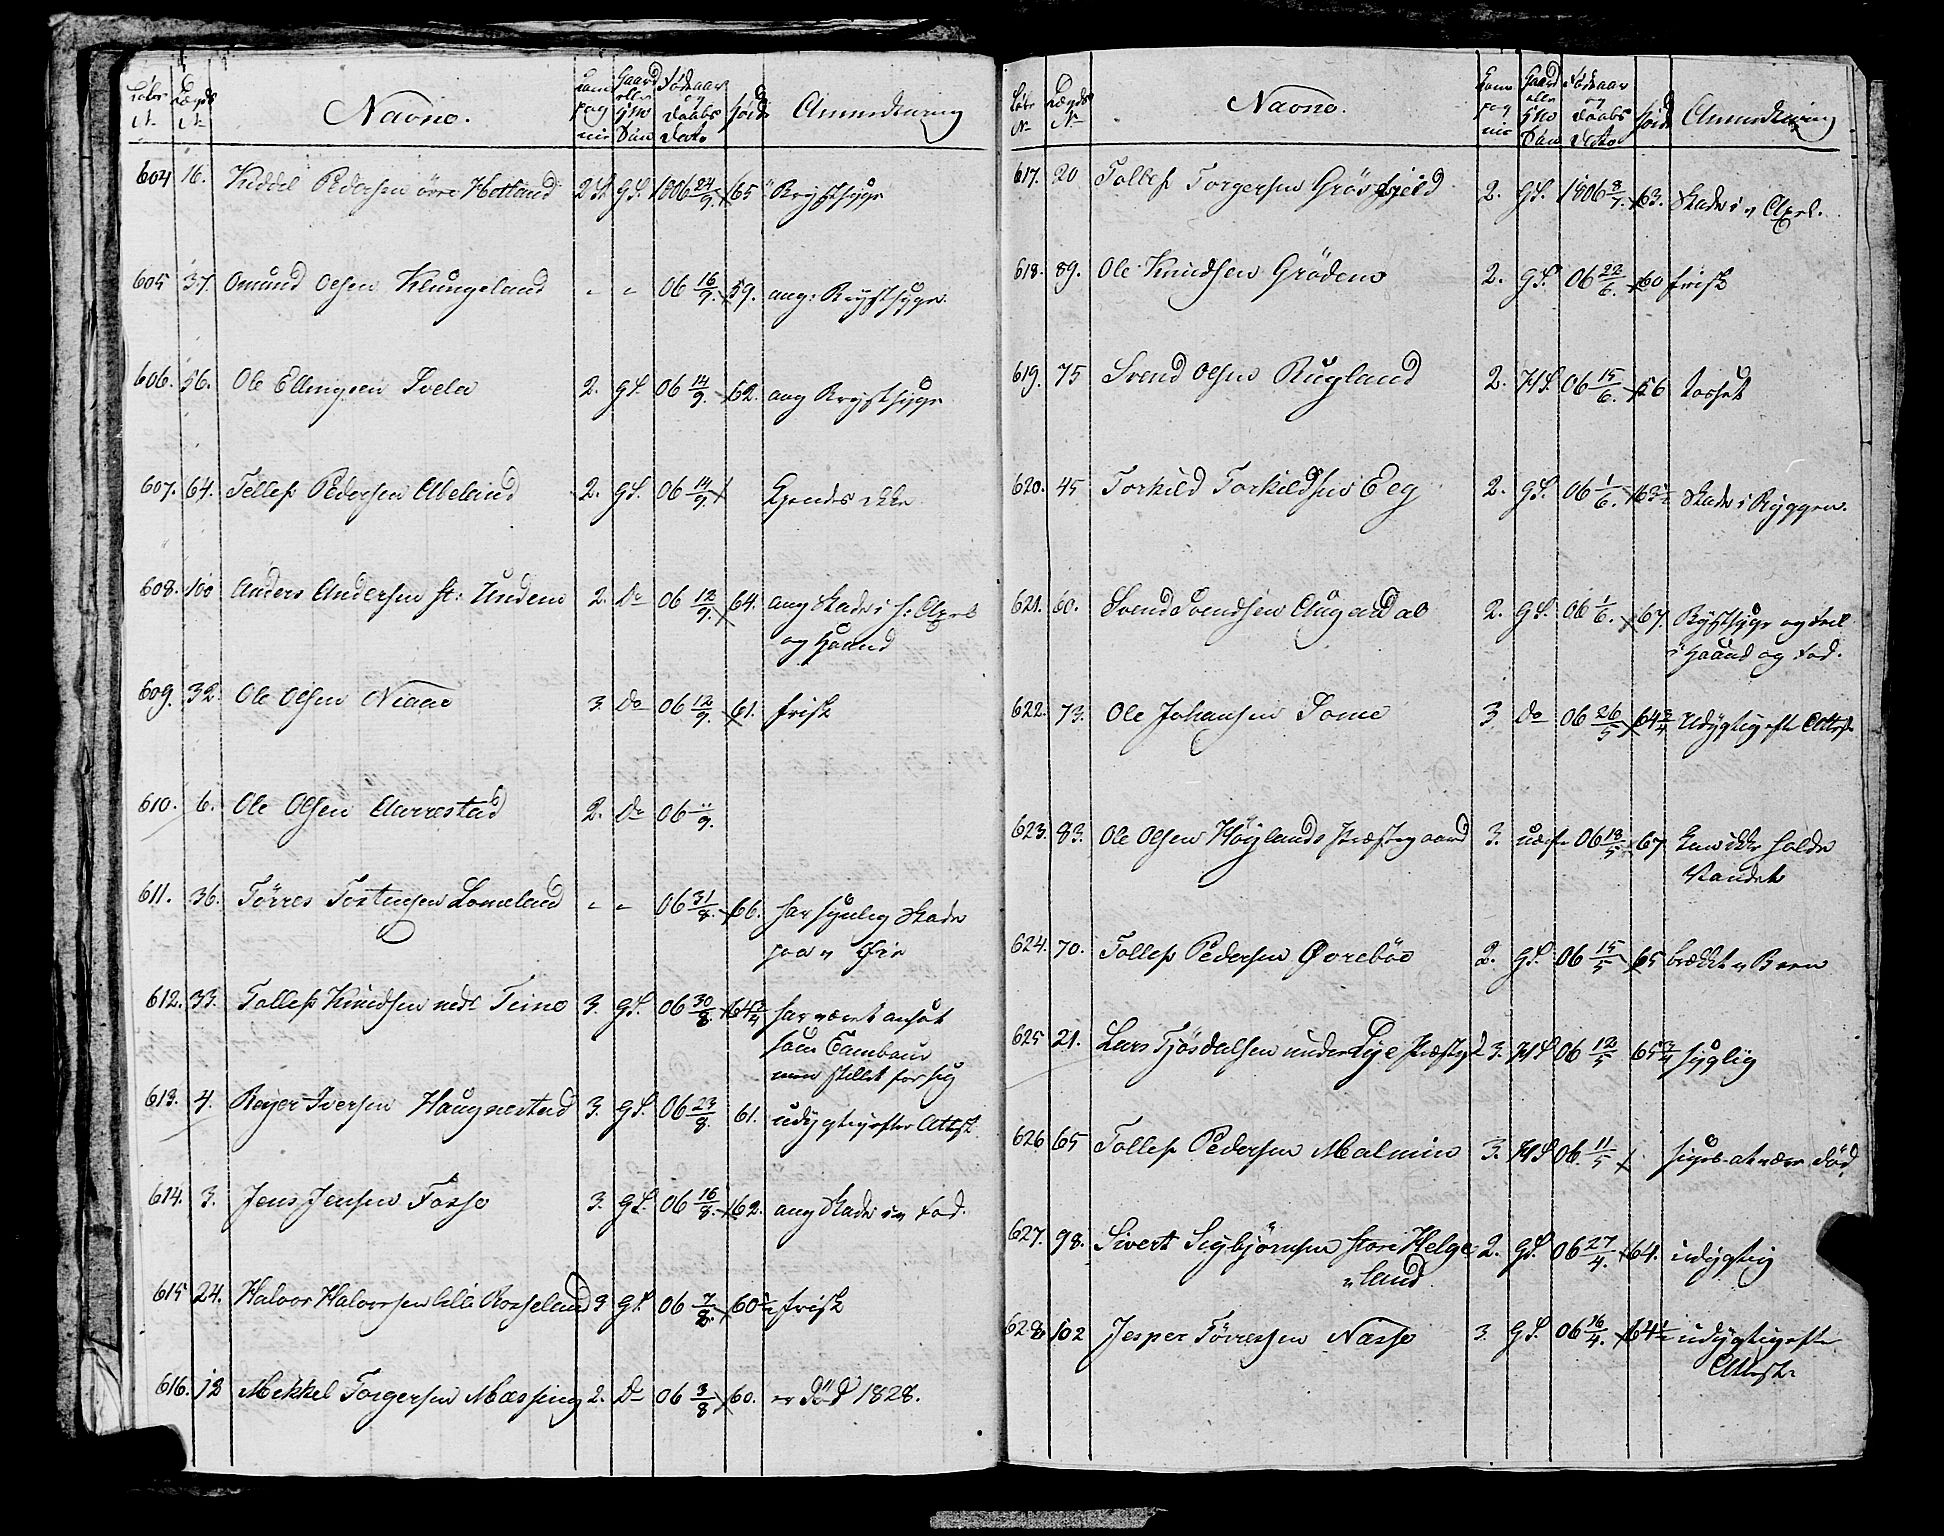 Løbe N Lægds N Navne. Kompagnie Gaard eller Hus Søn Fødeaar og Daabs Dato Høide Anmerkning
604 16. Kiddel Pedersen övre Hetland 2 G.S. 1806 24/9. 65 Brystsyge
605 37. Omund Olsen Klungeland " " 06 16/9. 59. ang: Brystsyge.
606. 56. Ole Ellingsen Svela 2. G.S. 06 14/9. 62. ang Brystsyge
607. 64. Tellef Pedersen Abeland 2. G.S. 06 14/9. Kjendes ikke
608. 100 Anders Andersen st: Undem 2. Do 06 12/9. 64. ang Skade i h: Axel
og Haand
609. 32. Ole Olsen Niaae 3. Do 06 12/9. 61. frisk
610. 6. Ole Olsen Aarrestad 2. Do 06 "/9.
611. 36. Törres Tostensen Lomeland " " 06 31/8. 66. har synlig Skade
paa v Øie
612. 33. Tollef Knudsen nedr Teine 3. G.S. 06 30/8. 64 3/4 har været ansat
som Tambour
men stillet for sig
613. 4. Reyer Iversen Haugnestad 3. G.S. 06 23/8. 61. udygtig efter Attest
614. 3. Jens Jensen Fosse 3. G.S. 06 16/8. 62. ang Skade i v Fod.
615 24. Halvor Halvorsen lille Rosseland 3 G.S. 06 7/8. 60 1/2 frisk
616. 12 Mekkel Torgersen Mæssing 2. Do 06 3/8 60. er död 1828.
Løbe N Lægds N Navne. Kompagnie Gaard eller Hus Søn Fødeaar og Daabs Dato Høide Anmerkning
617. 20 Tollef Torgersen Grösfjeld 2. G.S. 1806 8/7. 63. Skade i v Axel.
618. 89. Ole Knudsen Grödem 2. G.S. 06 22/6. 60 frisk
619. 75 Svend Olsen Rugland 2. H.S. 06 15/6. 56 tosset
620. 45 Torkild Torkildsen Eeg 2. G.S. 06 1/6. 63 1/2 Skade i Ryggen.
621. 60. Svend Svendsen Augardal 2. G.S. 06 1/6. 67. Brystsyge og feil
i Haand og Fod.
622. 73. Ole Johansen Tome 3 Do 06 26/5 64 3/4 Udygtig eft Attest
623. 83. Ole Olsen Höylands Præstegaard 3. uægte 06 18/5 67 Kan ikke holde
Vandet
624. 70. Tollef Pedersen Ovreböe 2. G.S. 06 15/5 65 brækket v Been
625 21. Lars Tjösdalsen under Lye Præstegd 3. H.S. 06 12/5 65 3/4 syglig
626 65 Tollef Pedersen Malmin 3. H.S. 06. 11/5 siges at være Död
627. 98. Sivert Sigbjörnsen store Helge 2. G.S. 06 27/4. 64. udygtig
"land
628. 102 Jesper Törresen Nasse 3. G.S. 06 16/4. 64 1/2 udygtig efter
Attest